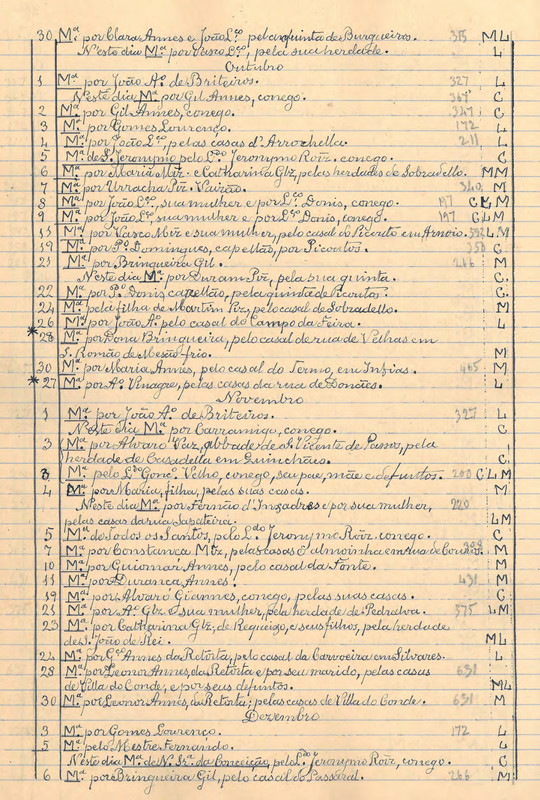 30 Mª. por Clara Annes e João Lço. pela quinta de Burgueiros. 315 M L
N'este dia Mª. por Vasco Lço., pela sua herdade. L
Outubro
1 Mª. por João Aº. de Briteiros. 327 L
N'este dia Mª. por Gil Annes, conego. 347 C
2 Mª. por Gil Annes, conego. 347 C
3 Mª. por Gomes Lourenço. 172 L
4 Mª. por João Lço., pelas casas d'Arrochella. 211 L
5 Mª. de S. Jeronymo pelo Ldo. Jeronymo Roiz. conego. C
6 Mª. por Maria Miz. e Catharina Glz, pelas herdades de Sobradello. M M
7 Mª. por Urracha Piz. Vairão. 340 M
8 Mª. por João Lço., sua mulher e por Lço. Donis, conego. 197 C L M
9 Mª. por João Lço., sua mulher e por Lço. Donis, conego. 197 C L M
11 Mª. por Vasco Miz e sua mulher, pelo casal do Picouto em Arnoio. 392 L M
19 Mª. por Pº. Domingues, capellão, por Picoutos. 358 C
21 Mª. por Bringueira Gil. 266 M
N'este dia Mª. por Duram Piz, pela sua quinta. C
22 Mª. por Pº. Donis capellão, pela quinta de Picoutos. C
24 Mª. pela filha de Martim Piz, pelo casal de Sobradello. M
26 Mª. por João Aº. pelo casal do Campo da Feira. L
* 28 Mª. por Dona Bringueira, pelo casal de rua de Velhas em
S. Romão de Mesão frio. M
30 Mª. por Maria Annes, pelo casal do Termo, em Infias. 465 M
* 27 Mª. por Aº. Vinagre, pelas casas da rua de Donães. L
Novembro
1 Mª. por João Aº. de Briteiros. 327 L
N'este dia Mª. por Carramigo, conego. C
3 Mª. por Alvaro Vaz, abbade de S. Vicente de Passos, pela
herdade de Casadella em Quinchães. C
3. Mª. pelo Ldo Gonç. Velho, conego, seu pae, mãe e defuntos. 200 C L M
4 Mª. por Maria, filha, pelas suas casas. M
N'este dia Mª. por Fernão d'Inzadres e por sua mulher, 220
pelas casas da rua Sapateira. L M
5 Mª. de Todos os Santos, pelo Ldo. Jeronymo Roiz. conego. C
7 Mª. por Constança Miz, pelas casas e almoinha em rua de Couros. M
10 Mª. por Guiomar Annes, pelo casal da Fonte. M
11 Mª. por Durança Annes. 431 M
19 Mª. por Alvaro Giannes, conego, pelas suas casas. C
21 Mª. por Aº. Glz. e sua mulher, pela herdade de Pedralva. 575 L M
23 Mª. por Catharina Glz, de Requeixo, e seus filhos, pela herdade
de S. João de Rei. M L
24 Mª. por Gço Annes da Retorta, pelo casal da Carvoeira em Silvares. L
28 Mª. por Leonor Annes, da Retorta e por seu marido, pelas casas 631
de Villa do Conde, e por seus defuntos. M L
30 Mª. por Leonor Annes, da Retorta; pelas casas de Villa do Conde. 631 M
Dezembro
3 Mª. por Gomes Lourenço. 172 L
5 Mª. pelo Mestre Fernando. L
N'este dia Mª. de N. Srª. da Conceição, pelo Ldo. Jeronymo Roiz, conego. C
6 Mª. por Bringueira Gil, pelo casal do Passoral. 266 M